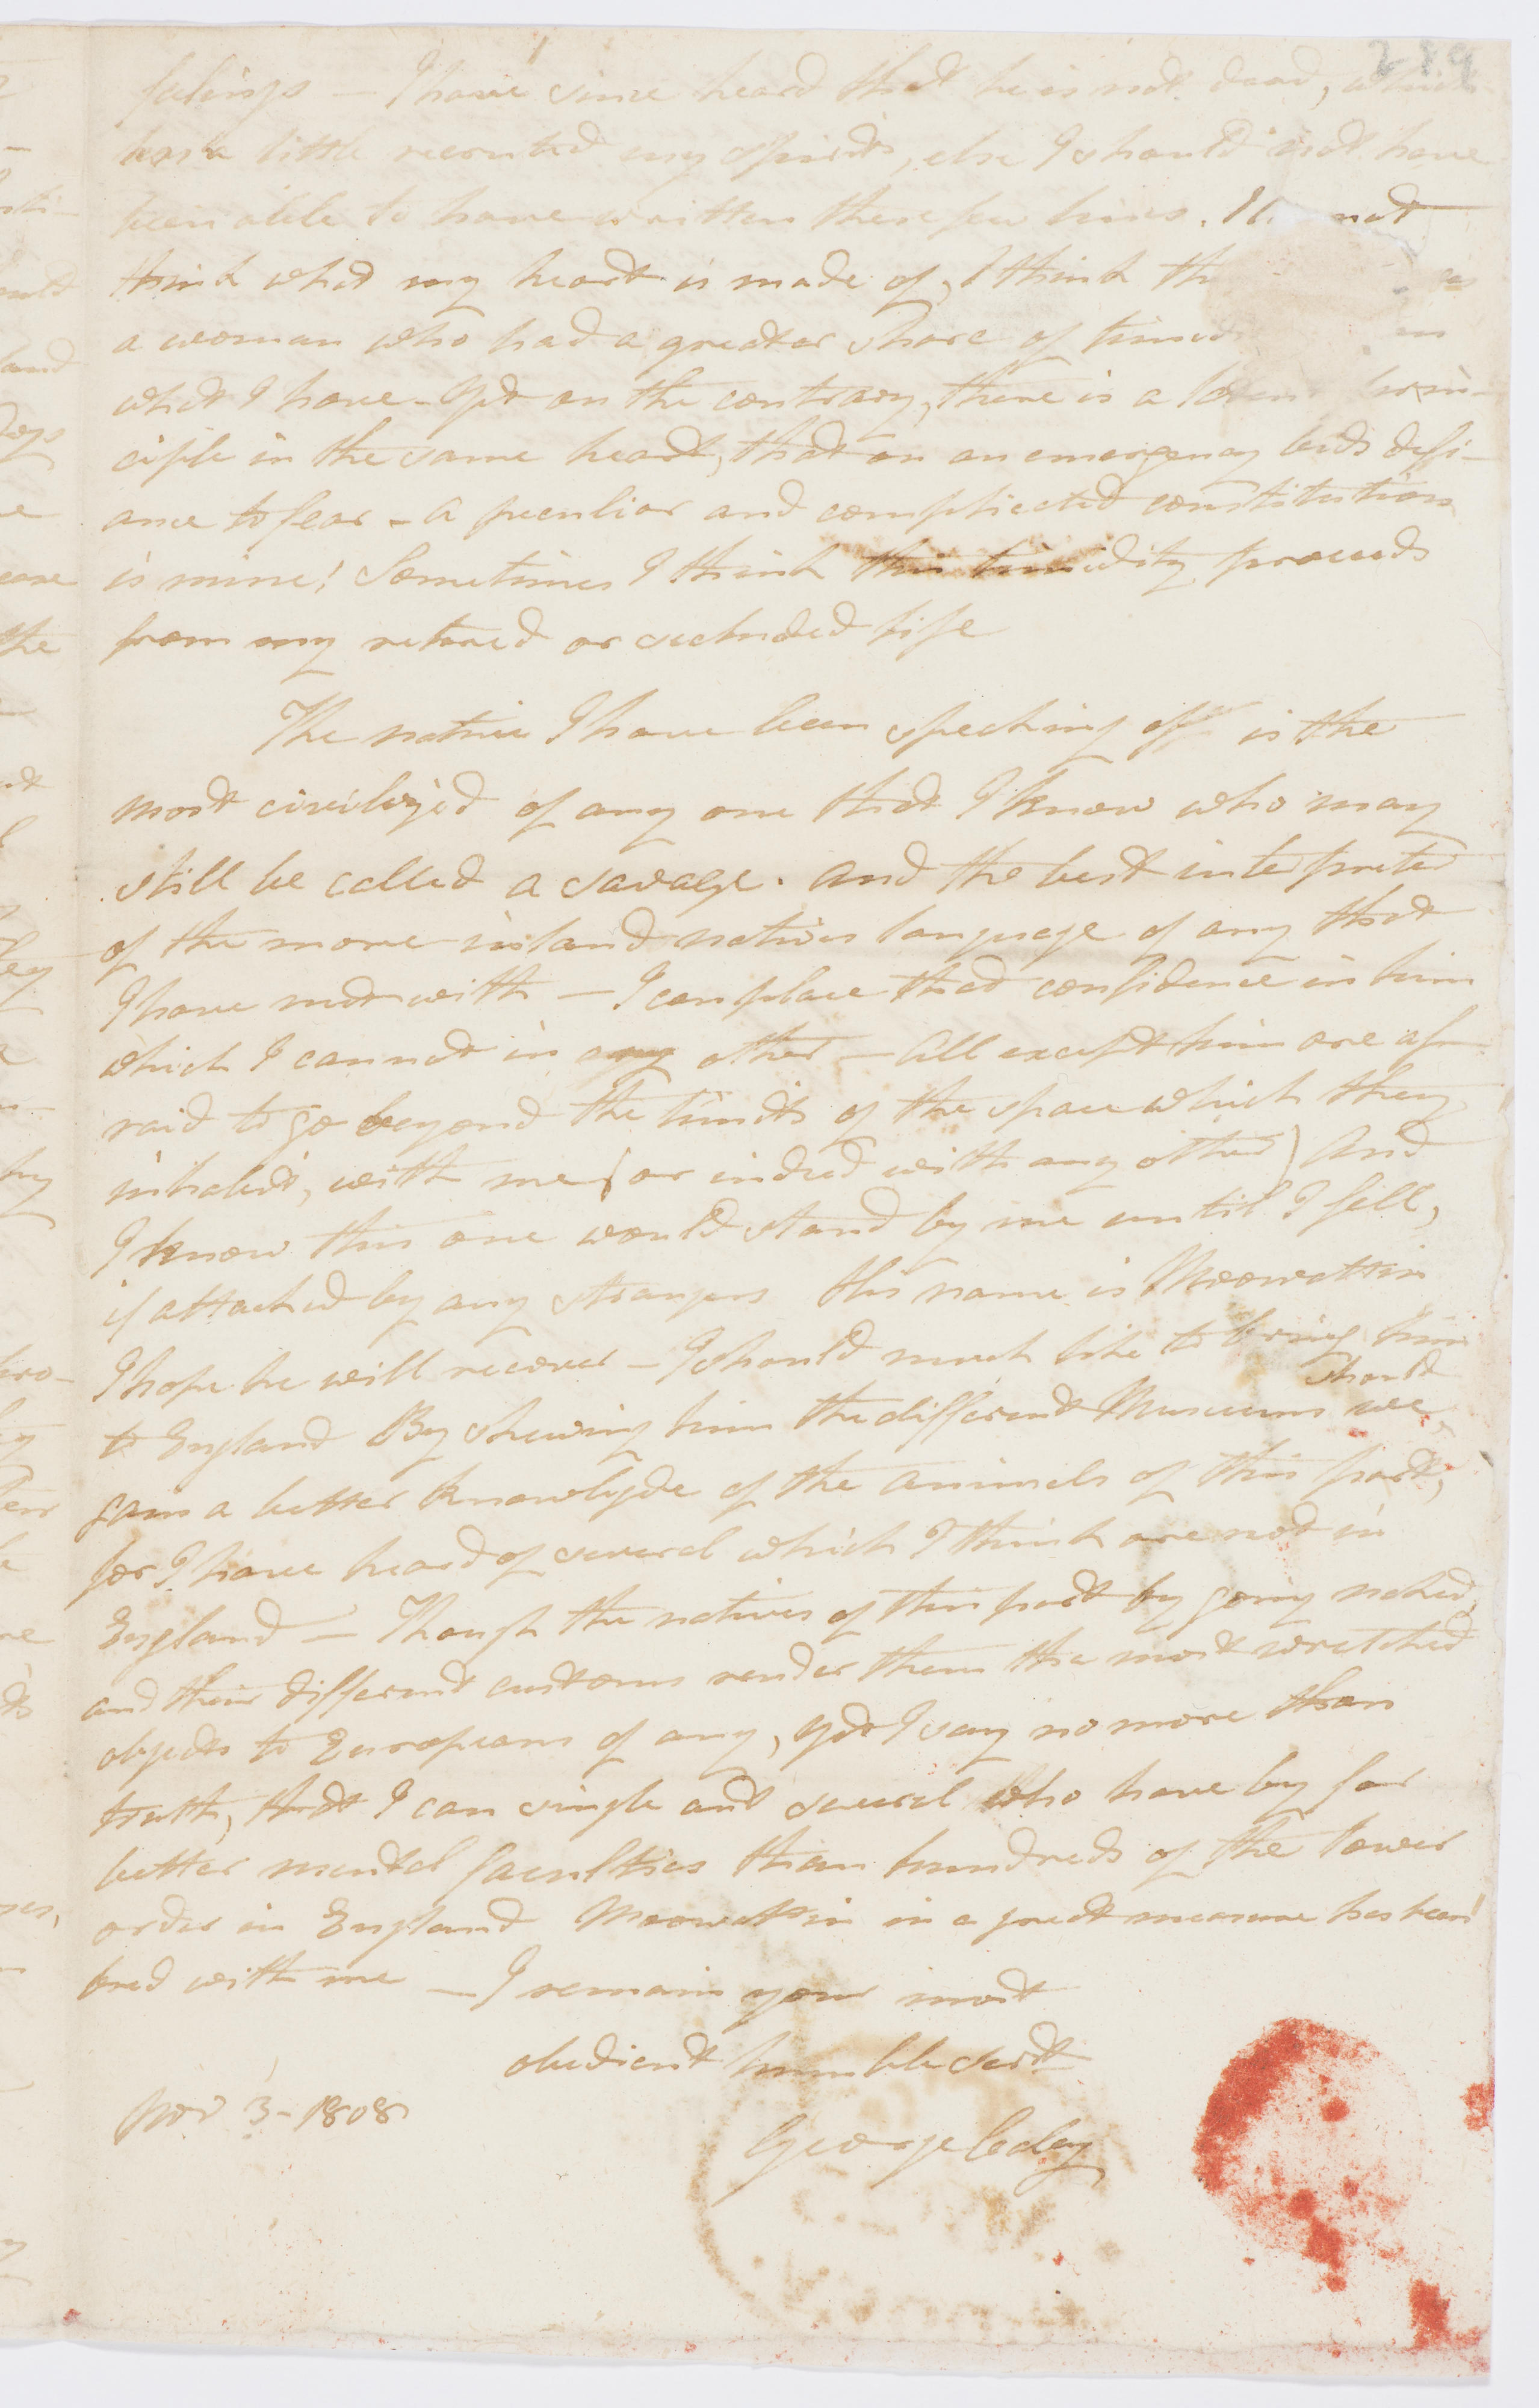 289
felings – I have since heard that he is not dead, which
has a little recruted my spirits, else I should not have
been able to have written these few lines. I not
think what my heart is made of, I think th
a woman who had a greater share of timid
what I have – yet on the contrary, there is a prin-
ciple in the same heart, that on an emergency bids defi-
ance to fear – a peculiar and complicated constitution
is mine! Sometimes I think this timidity proceeds
from my retired or secluded life
The native I have been speaking off is the
most civilized of any one that I know who may
still be called a savage. and the best interpreter
of the more inland natives language of any that
I have met with – I can place that confidence in him
which I cannot in any other – All except him are af-
raid to go beyond the limits of the space which they
inhabit, with me (or indeed with any other) And
I know this one would stand by me until I fell,
if attacked by any strangers His name is Moowattin
I hope he will recover – I should much like to bring him
should
to England By shewing him the different Museums we,
gain a better knowlegde of the animals of this part,
for I have heard of several which I think are not in
England – Though the natives of this part by going naked,
and their different customs render them the most wretched
objects to Europeans of any, yet I say no more than
truth, that I can single out several who have by far
better mental faculties than hundreds of the lower
order in England Moowattin in a great measure has been
bred with me – I remain your most
obedient humble servt
Nov 3 – 1808
George Caley